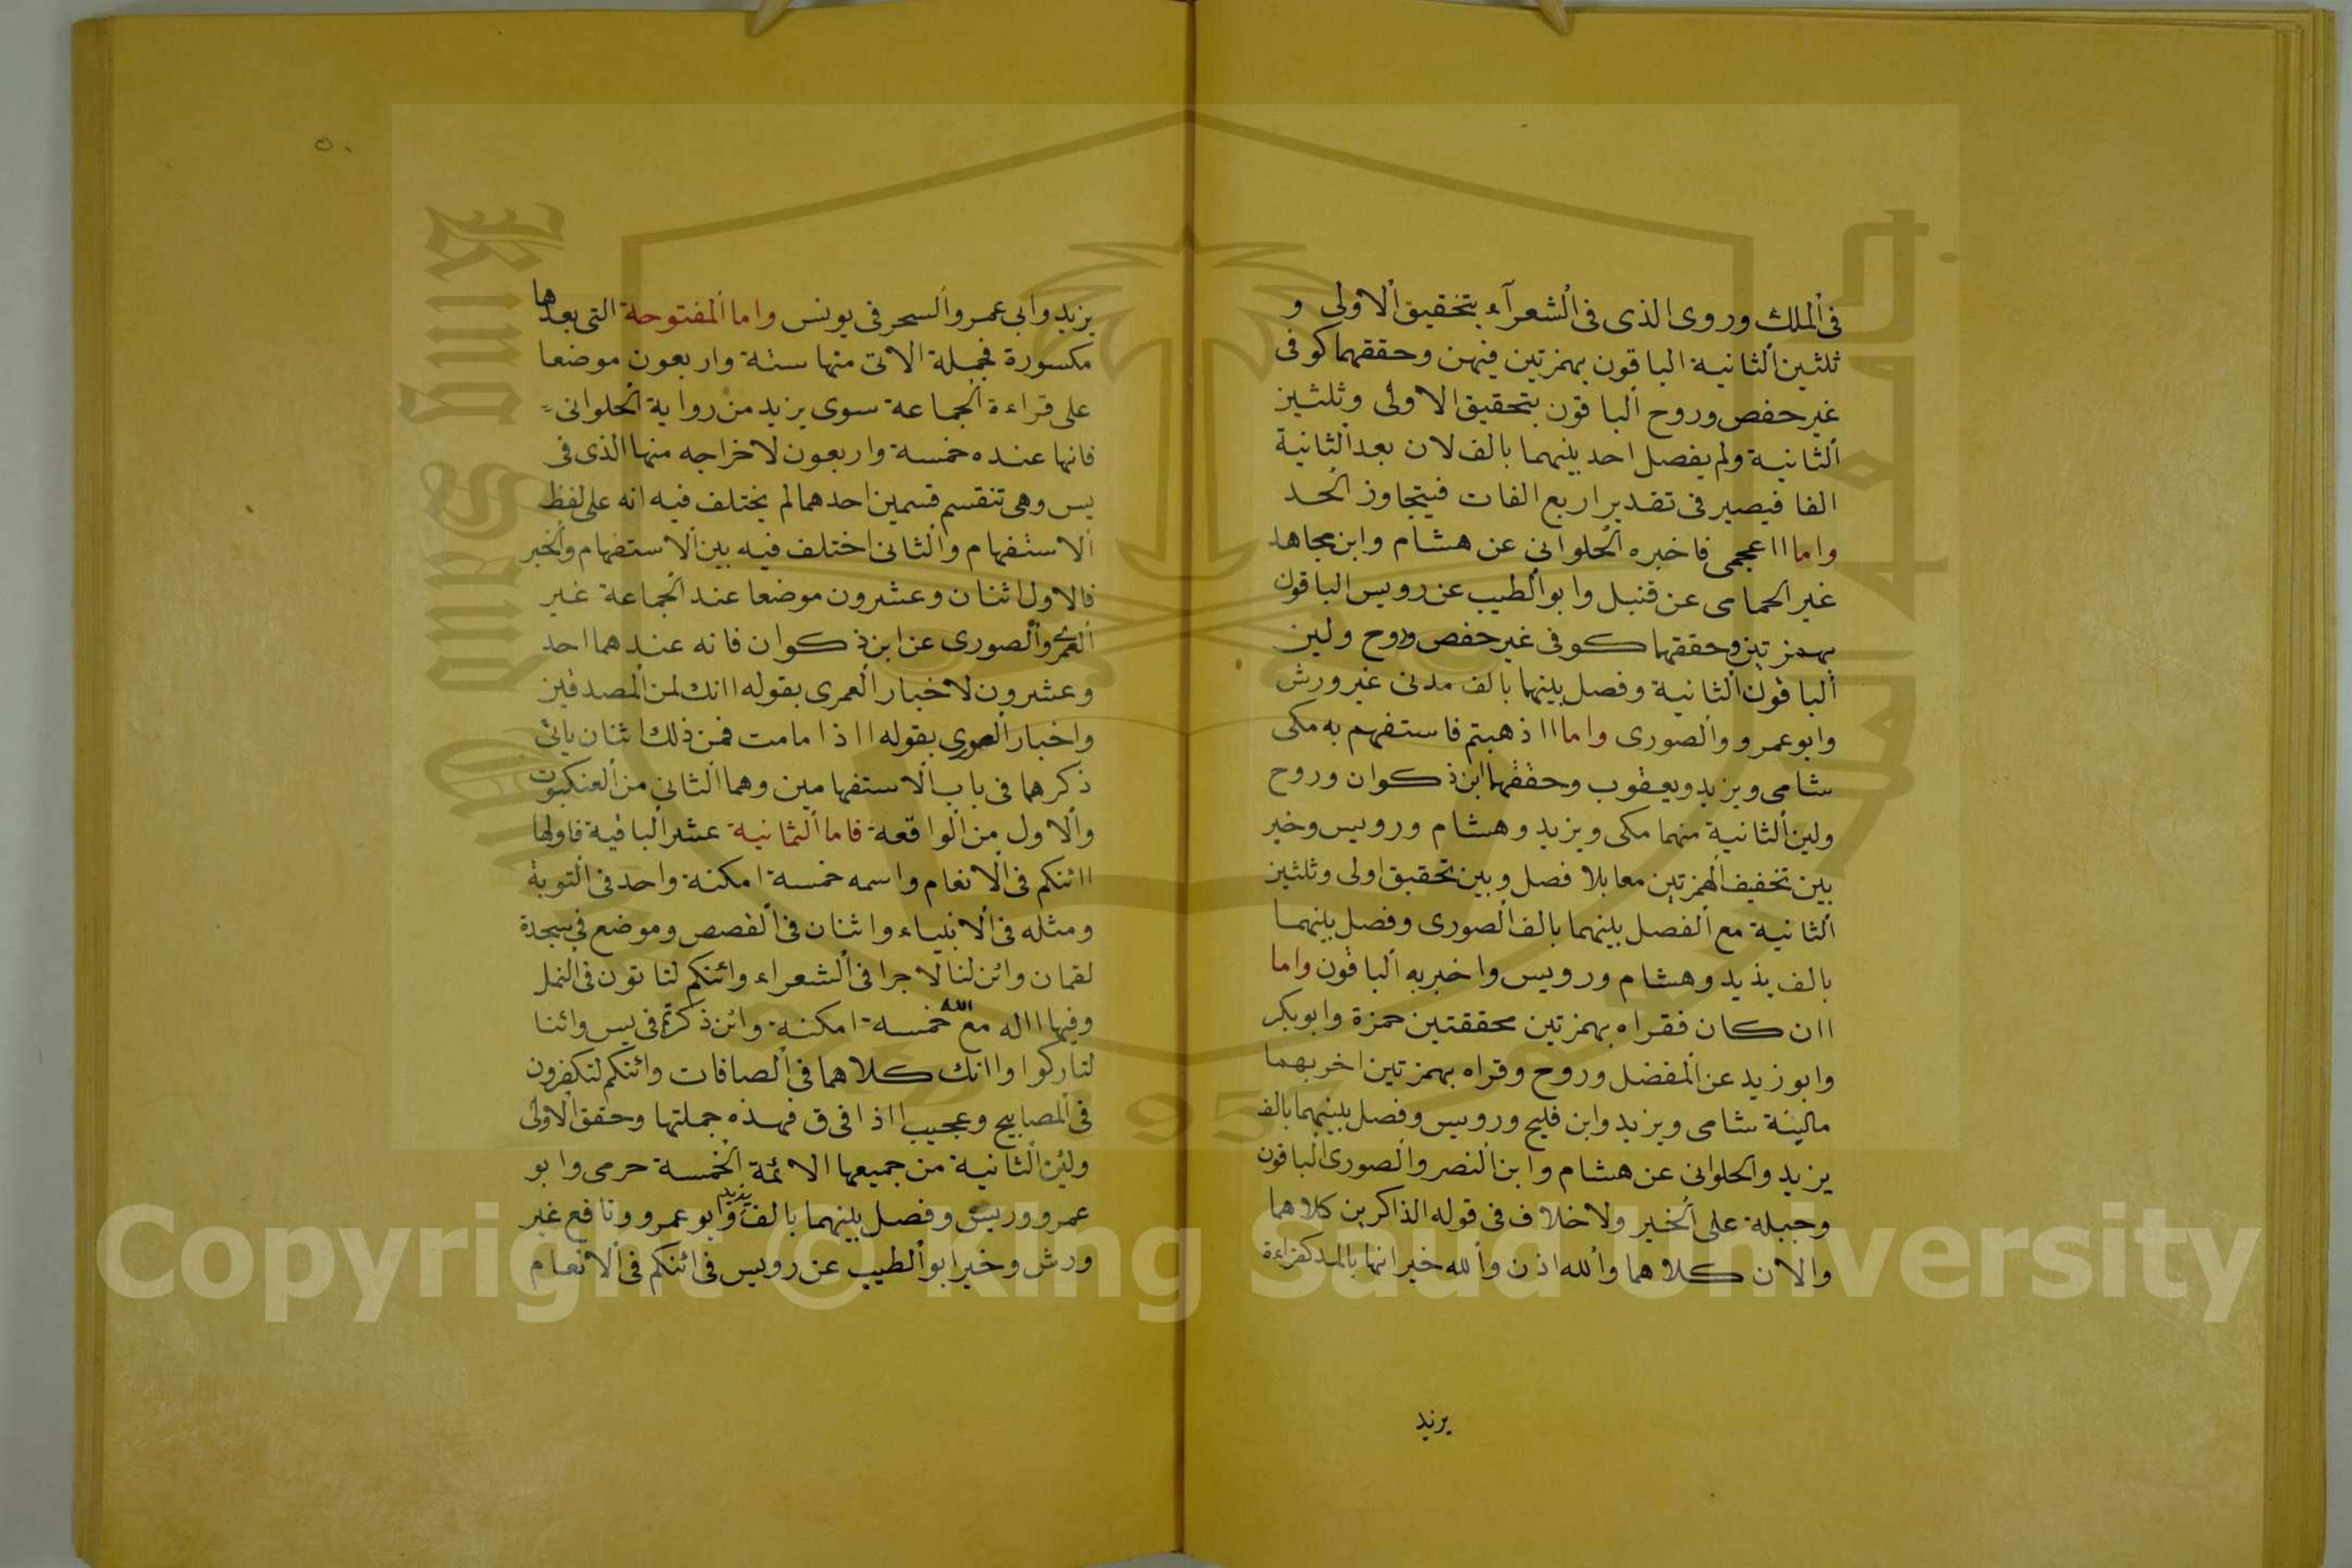 فى الملك وروى الذى فى الشعرآء بتخقيق الاولى و
ثلثين الثانية الباقون بهمزتين فيهن وحققهما كوفى
غير حفص وروح الباقون بتحقيق الاولى وثلثيز
الثانية ولم يفصل احد بينهما بالف لان بعد الثانية
الفا فيصير فى تقدير اربع الفات فيتجاوز الحد
واما ااعجمى فاخبره الحلوانى عن هشام وابن مجاهد
غير الحمامى عن قنبل وابو الطيب عن رويس الباقون
بهمزتين وحققهما كوفى غير حفص وروح ولين
الباقون الثانية وفصل بينهما بالف مدنى غير ورش
وابو عمرو والصورى واما ااذهبتم فاستفهم به مكى
شامى ويزيد ويعقوب وحققهما ابن ذكوان وروح
ولين الثانية منهما مكى ويزيد وهشام ورويس وخير
بين تخفيف الهمزتين معا بلا فصل وبين تحقيق اولى وثلثيز
الثانية مع الفصل بينهما بالف الصورى وفصل بينهما
بالف يذيد وهشام ورويس واخبر به الباقون واما
اان كان فقراه بهمزتين محققتين حمزة وابو بكر
وابو زيد عن المفضل وروح وقراه بهمزتين اخربهما
مالينة شامى ويزيد وابن فليح ورويس وفصل بينهما بالف
يزيد والحلوانى عن هشام وابن النصر والصورى الباقون
وجبلة على الخبر ولا خلاف فى قوله الذاكرين كلاهما
والان كلاهما والله اذن والله خير انها بالمد كقراءة
يزيد
يزيد وابى عمرو السحر فى يونس واما المفتوحة التى بعدها
مكسورة فجملة الاتى منها ستة واربعون موضعا
على قراءة الجماعة سوى يزيد من رواية الحلوانى
فانها عنده خمسة واربعون لاخراجه منها الذى فى
يس وهى تنقسم قسمين احدهما لم يختلف فيه انه على لفظ
الاستفهام والثانى اختلف فيه بين الاستفهام والخبر
فالاول اثنان وعشرون موضعا عند الجماعة غير
العمرى والصورى عن ابن ذكوان فانه عندهما احد
وعشرون لاخبار العمرى بقوله اانك لمن المصدقين
واخبار الصورى بقوله ااذا مامت فمن ذلك اثنان ياتى
ذكرهما فى باب الاستفهامين وهما الثانى من العنكبوت
والاول من الواقعة فاما الثمانية عشر الباقية فاولها
اائنكم فى الانعام واسمه خمسة امكنة واحد فى التوبة
ومثله فى الانبياء واثنان فى القصص وموضع فى سجدة
لقمان وائن لنا لاجرا فى الشعراء وائنكم لتاتون فى النمل
وفيها االه مع الله خمسة امكنة وائن ذكرتم فى يس وائنا
لتاركوا واانك كلاهما فى الصافات وائنكم لتكفرون
فى المصابيح وعجيب ااذا فى ق فهذه جملتها وحقق الاولى
ولين الثانية من جميعها الائمة الخمسة حرمى وابو
عمرو وريس وفصل بينهما بالف يزيد وابو عمرو ونافع غير
ورش وخير ابو الطيب عن رويس فى ائنكم فى الانعام
Copyright © King Saud University
King Saud
1957